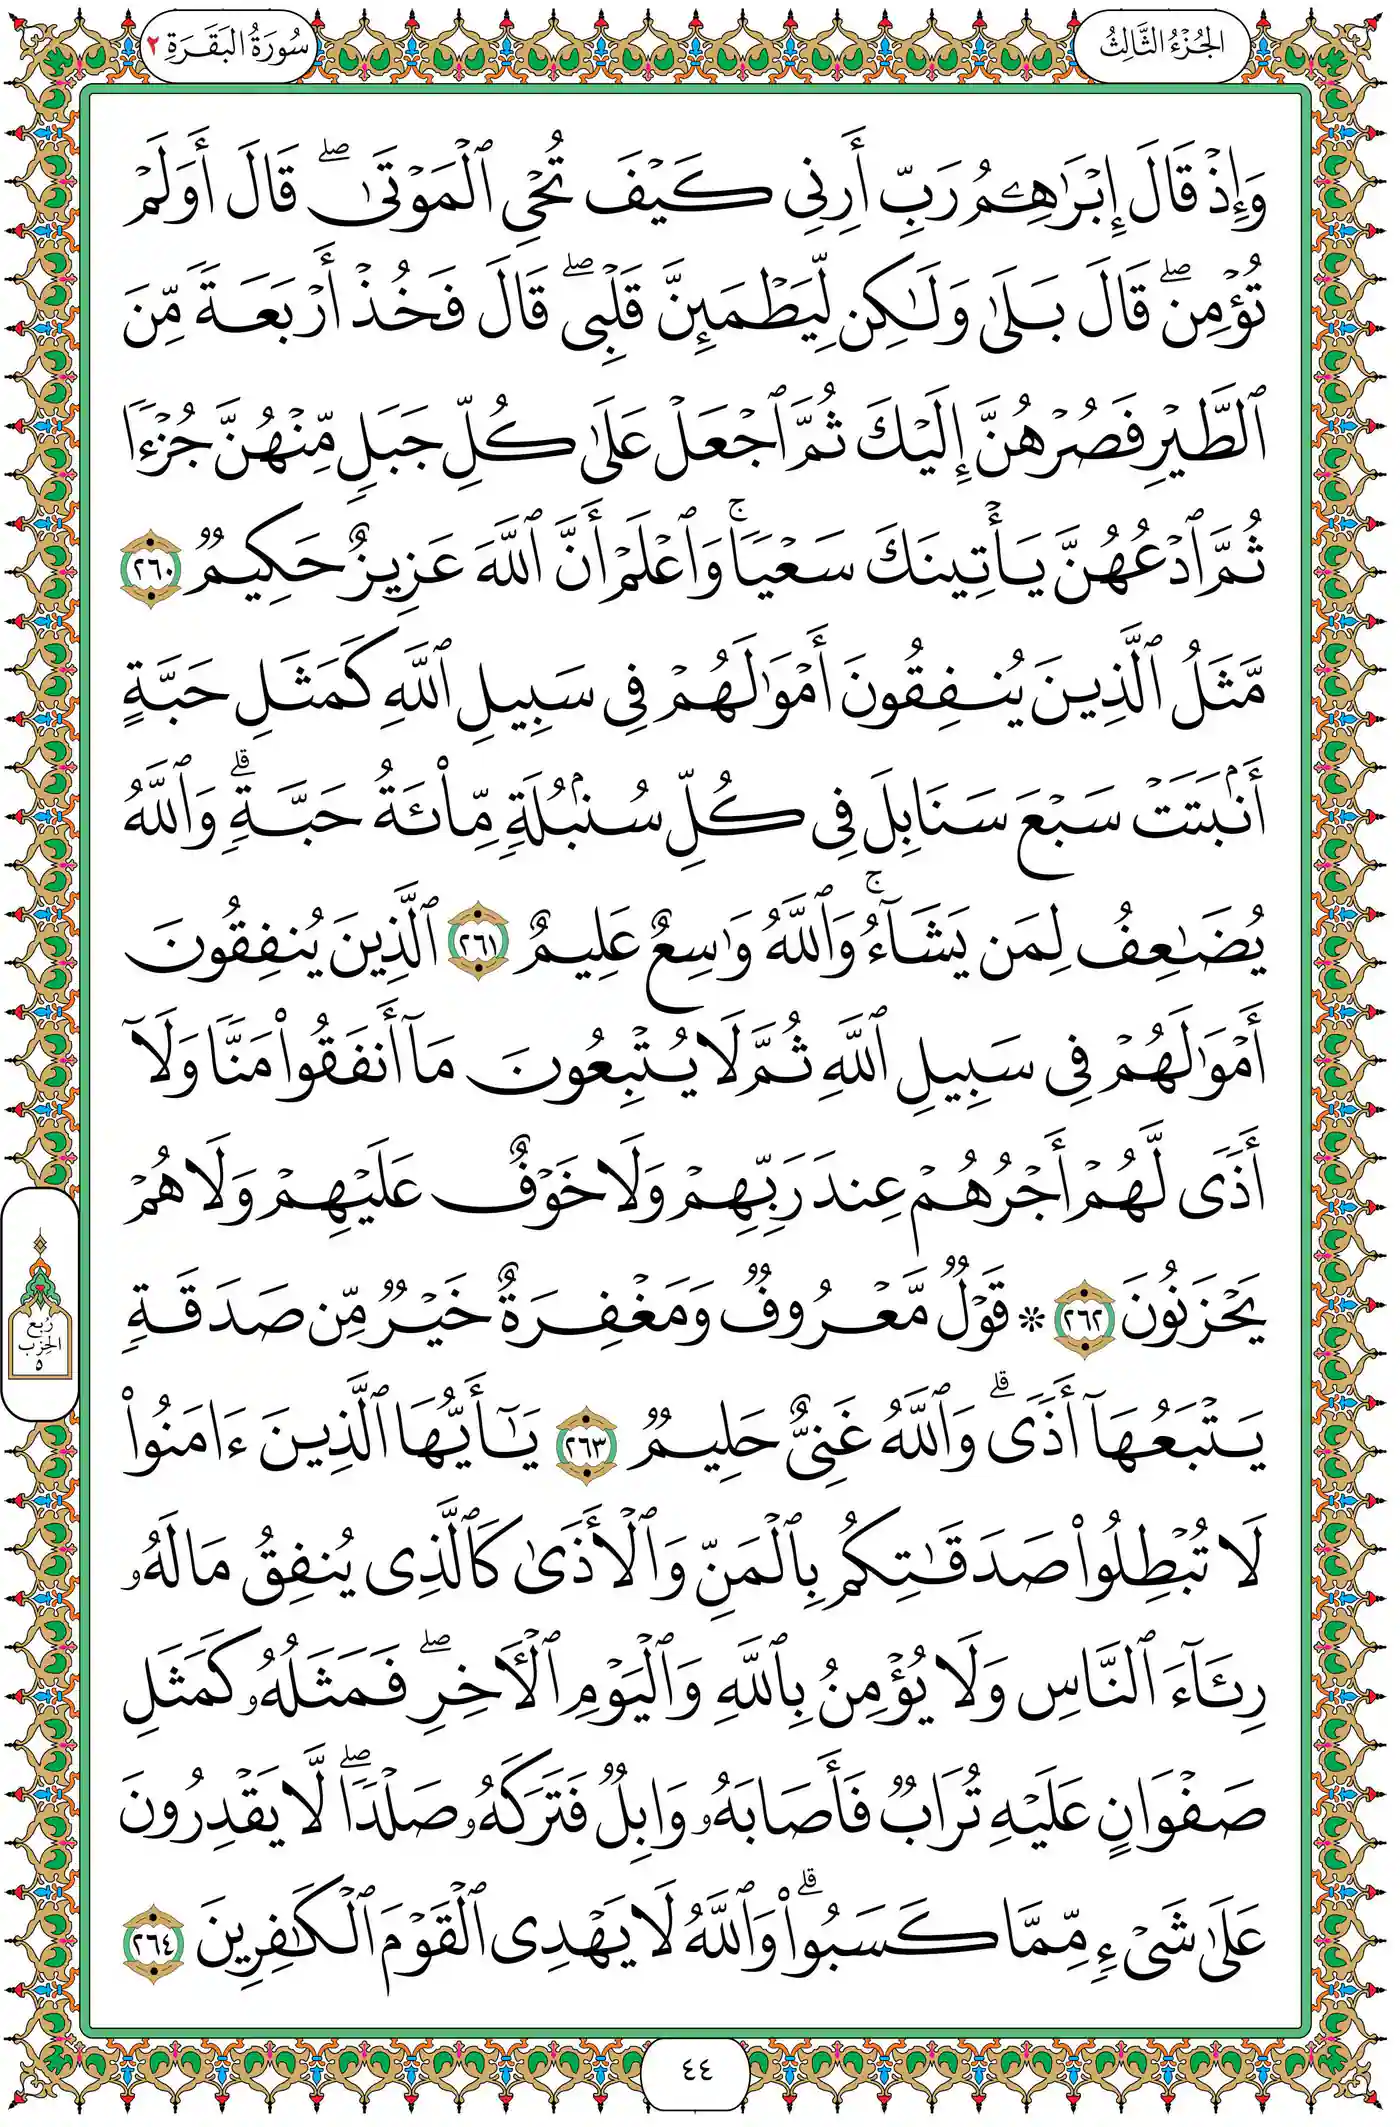 الجُزْءُ الثَّالِثُ
سُورَةُ البَقَرَةِ ٢
وَإِذْ قَالَ إِبْرَٰهِـۧمُ رَبِّ أَرِنِى كَيْفَ تُحْىِ ٱلْمَوْتَىٰ ۖ قَالَ أَوَلَمْ
تُؤْمِن ۖ قَالَ بَلَىٰ وَلَـٰكِن لِّيَطْمَئِنَّ قَلْبِى ۖ قَالَ فَخُذْ أَرْبَعَةً مِّنَ
ٱلطَّيْرِ فَصُرْهُنَّ إِلَيْكَ ثُمَّ ٱجْعَلْ عَلَىٰ كُلِّ جَبَلٍ مِّنْهُنَّ جُزْءًا
ثُمَّ ٱدْعُهُنَّ يَأْتِينَكَ سَعْيًا ۚ وَٱعْلَمْ أَنَّ ٱللَّهَ عَزِيزٌ حَكِيمٌ ٢٦٠
مَّثَلُ ٱلَّذِينَ يُنفِقُونَ أَمْوَٰلَهُمْ فِى سَبِيلِ ٱللَّهِ كَمَثَلِ حَبَّةٍ
أَنۢبَتَتْ سَبْعَ سَنَابِلَ فِى كُلِّ سُنۢبُلَةٍ مِّا۟ئَةُ حَبَّةٍ ۗ وَٱللَّهُ
يُضَـٰعِفُ لِمَن يَشَآءُ ۚ وَٱللَّهُ وَٰسِعٌ عَلِيمٌ ٢٦١ ٱلَّذِينَ يُنفِقُونَ
أَمْوَٰلَهُمْ فِى سَبِيلِ ٱللَّهِ ثُمَّ لَا يُتْبِعُونَ مَآ أَنفَقُوا۟ مَنًّا وَلَآ
أَذًى لَّهُمْ أَجْرُهُمْ عِندَ رَبِّهِمْ وَلَا خَوْفٌ عَلَيْهِمْ وَلَا هُمْ
يَحْزَنُونَ ٢٦٢ * قَوْلٌ مَّعْرُوفٌ وَمَغْفِرَةٌ خَيْرٌ مِّن صَدَقَةٍ
يَتْبَعُهَآ أَذًى ۗ وَٱللَّهُ غَنِىٌّ حَلِيمٌ ٢٦٣ يَـٰٓأَيُّهَا ٱلَّذِينَ ءَامَنُوا۟
لَا تُبْطِلُوا۟ صَدَقَـٰتِكُم بِٱلْمَنِّ وَٱلْأَذَىٰ كَٱلَّذِى يُنفِقُ مَالَهُۥ
رِئَآءَ ٱلنَّاسِ وَلَا يُؤْمِنُ بِٱللَّهِ وَٱلْيَوْمِ ٱلْـَٔاخِرِ ۖ فَمَثَلُهُۥ كَمَثَلِ
صَفْوَانٍ عَلَيْهِ تُرَابٌ فَأَصَابَهُۥ وَابِلٌ فَتَرَكَهُۥ صَلْدًا ۖ لَّا يَقْدِرُونَ
عَلَىٰ شَىْءٍ مِّمَّا كَسَبُوا۟ ۗ وَٱللَّهُ لَا يَهْدِى ٱلْقَوْمَ ٱلْكَـٰفِرِينَ ٢٦٤
رُبع
الحِزْب
٥
٤٤